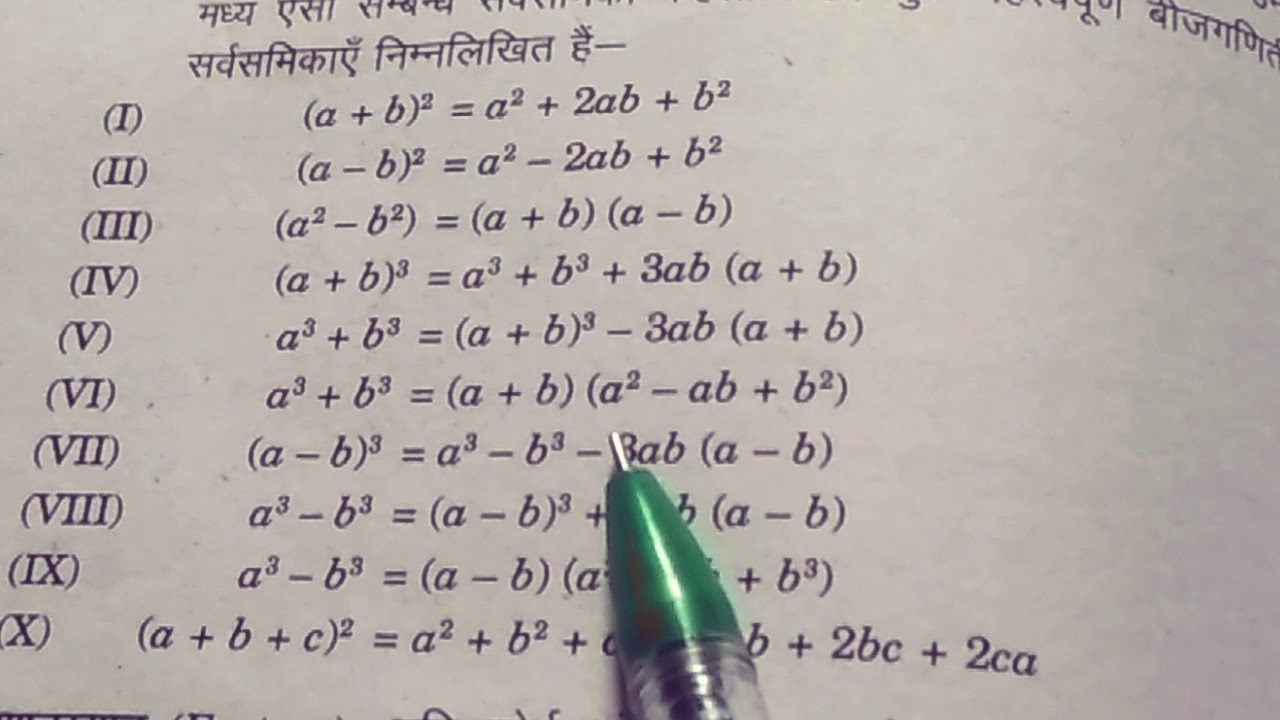 मध्य ऐसा सम्बन्ध बीजगणित
सर्वसमिकाएँ निम्नलिखित हैं—
(I) (a + b)² = a² + 2ab + b²
(II) (a – b)² = a² – 2ab + b²
(III) (a² – b²) = (a + b) (a – b)
(IV) (a + b)³ = a³ + b³ + 3ab (a + b)
(V) a³ + b³ = (a + b)³ – 3ab (a + b)
(VI) a³ + b³ = (a + b) (a² – ab + b²)
(VII) (a – b)³ = a³ – b³ – 3ab (a – b)
(VIII) a³ – b³ = (a – b)³ + b (a – b)
(IX) a³ – b³ = (a – b) (a + b³)
(X) (a + b + c)² = a² + b² + b + 2bc + 2ca